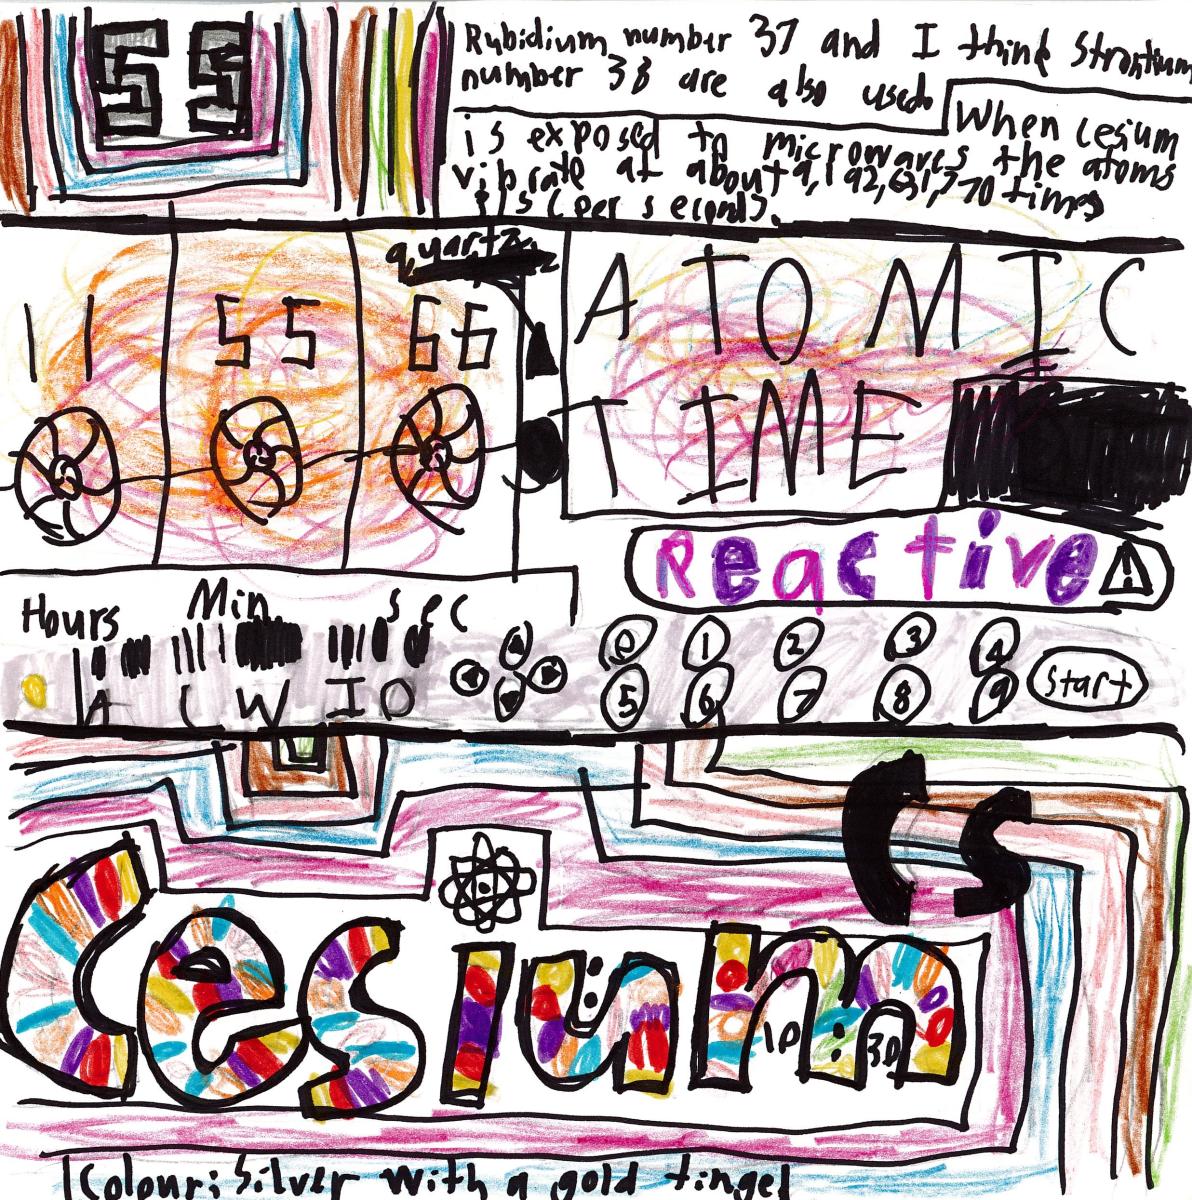 55
Rubidium number 37 and I think Strontium
number 38 are also used.
When cesium
is exposed to microwaves the atoms
vibrate at about 9,192,631,770 times
p/s (per second).
quartz
11 55 66
ATOMIC
TIME
Reactive
Hours Min sec
A C W I O
0 1 2 3 4
5 6 7 8 9
Start
Cs
Cesium
10:30
Colour: Silver with a gold tinge